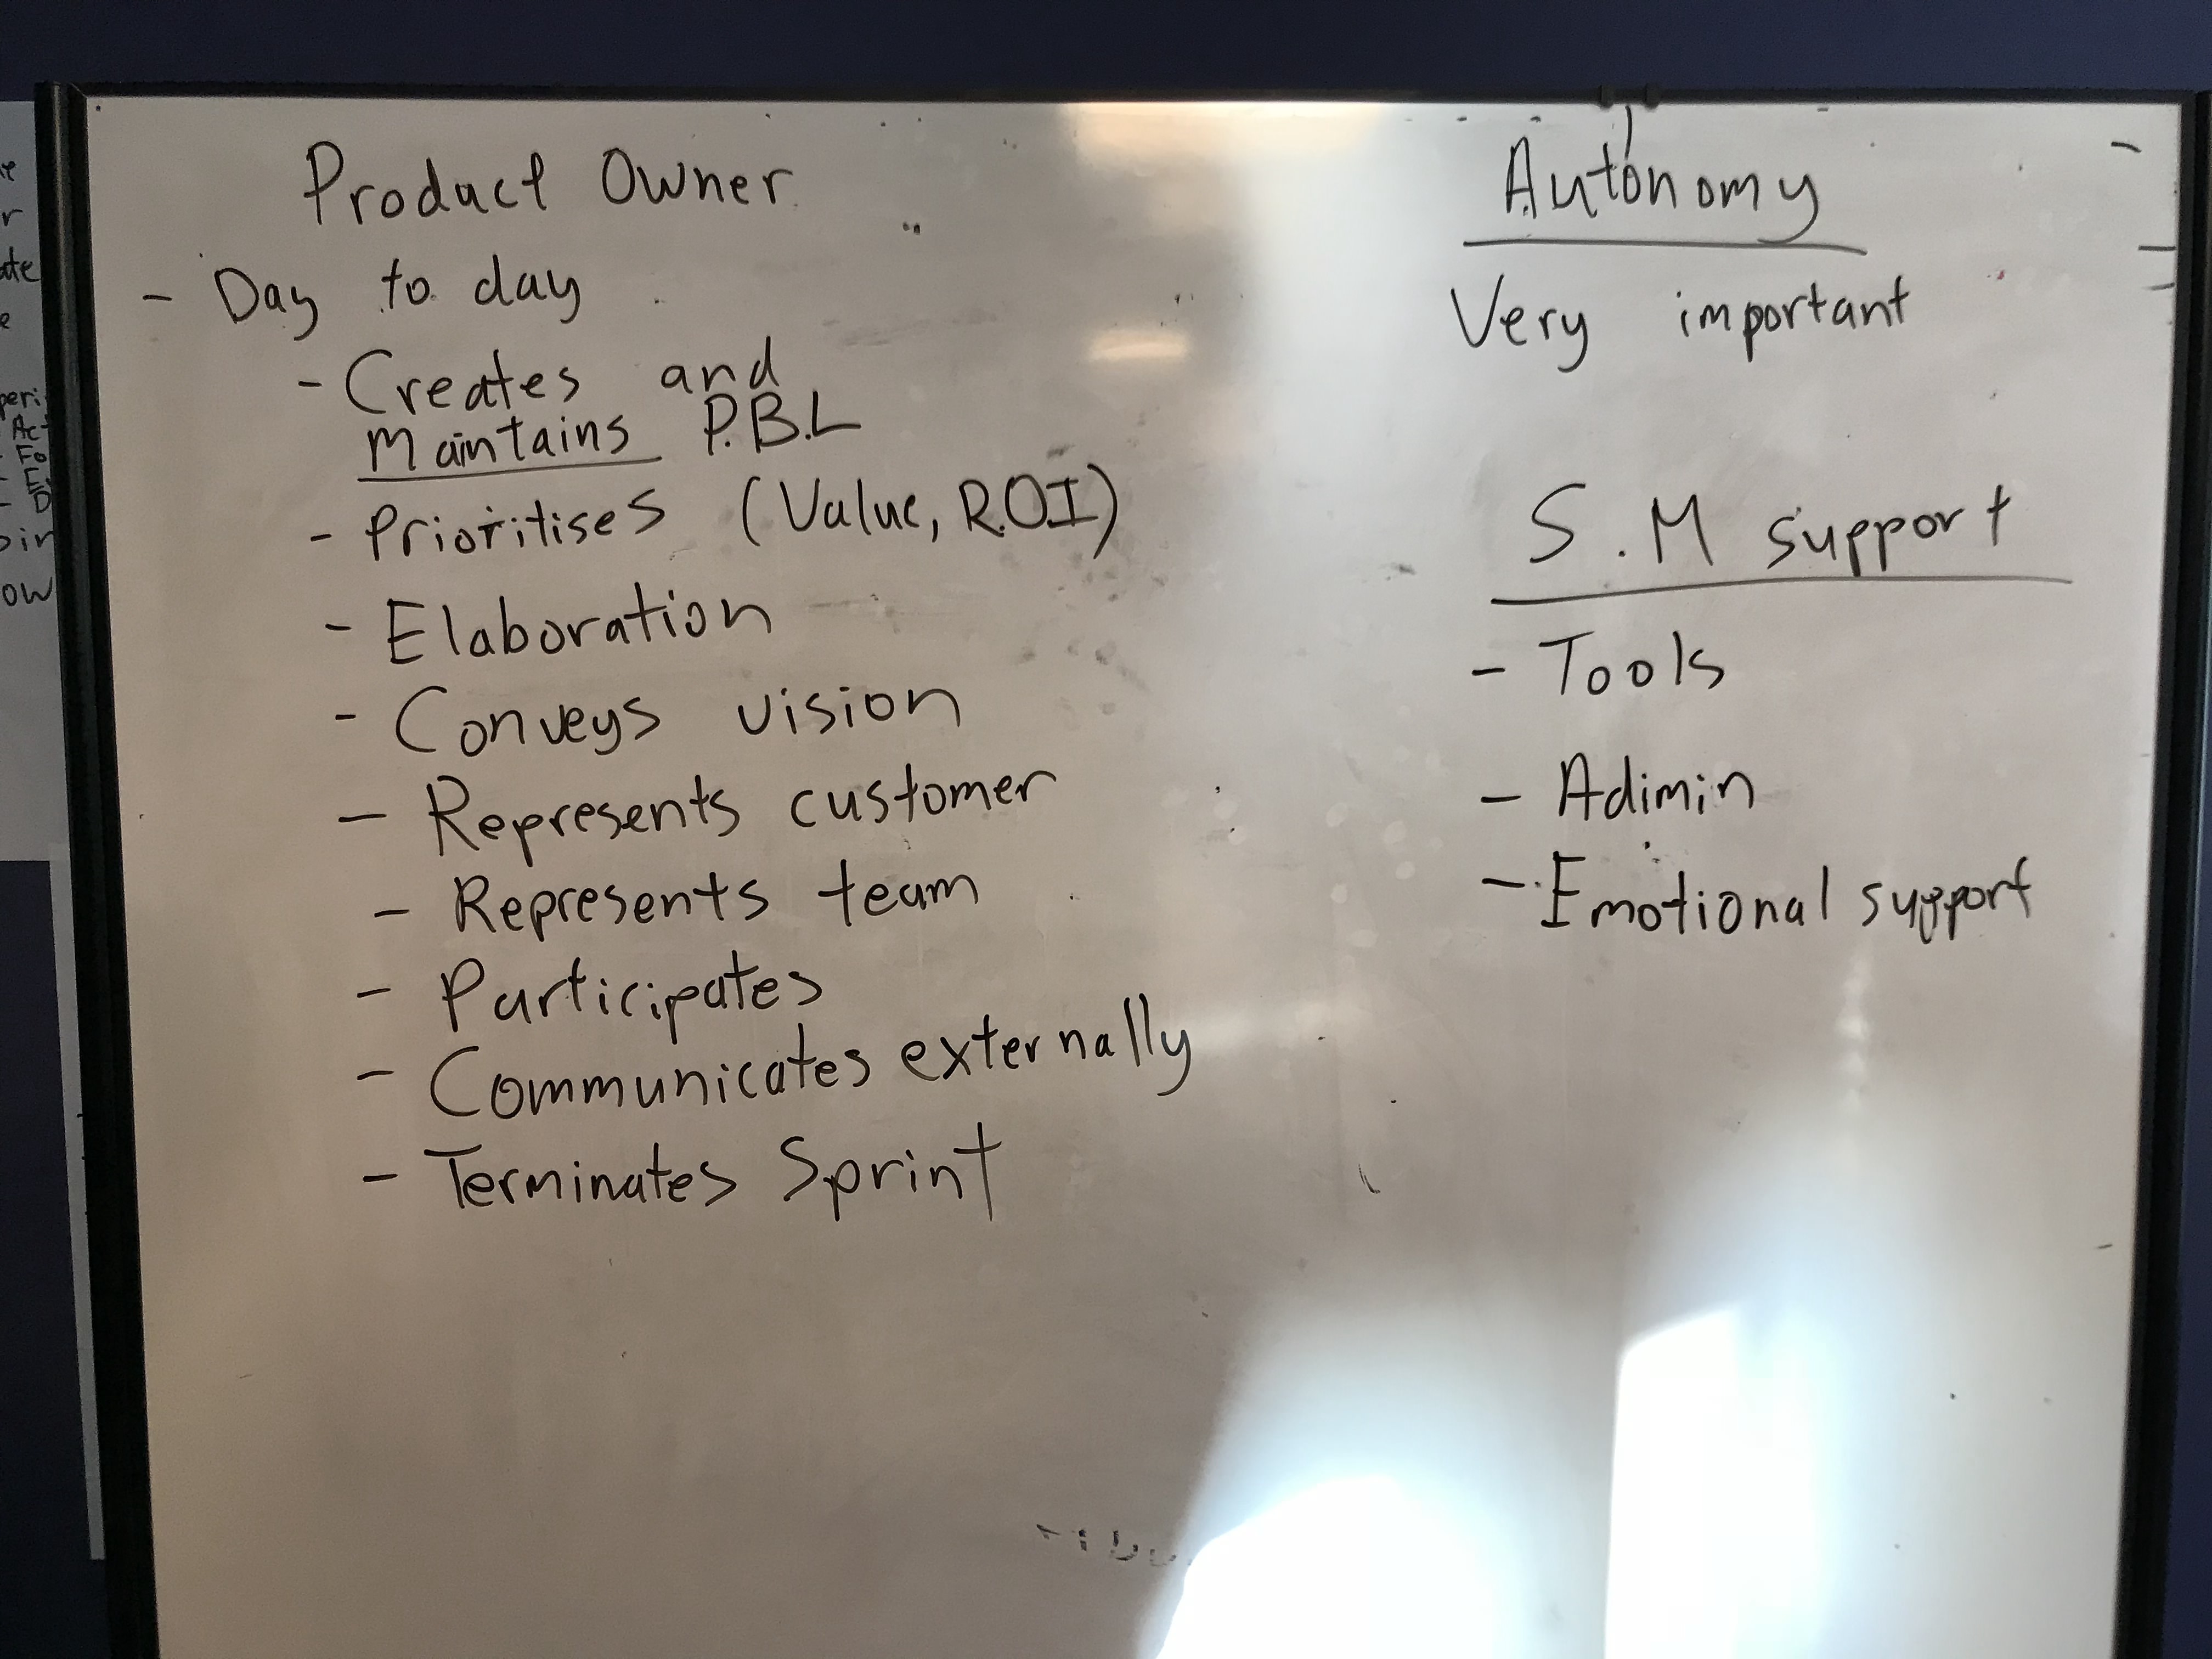 Product Owner
- Day to day
- Creates and
Maintains P.B.L
- Prioritises (Value, R.O.I)
- Elaboration
- Conveys vision
- Represents customer
- Represents team
- Participates
- Communicates externally
- Terminates Sprint
Autonomy
Very important
S.M support
- Tools
- Adimin
- Emotional support